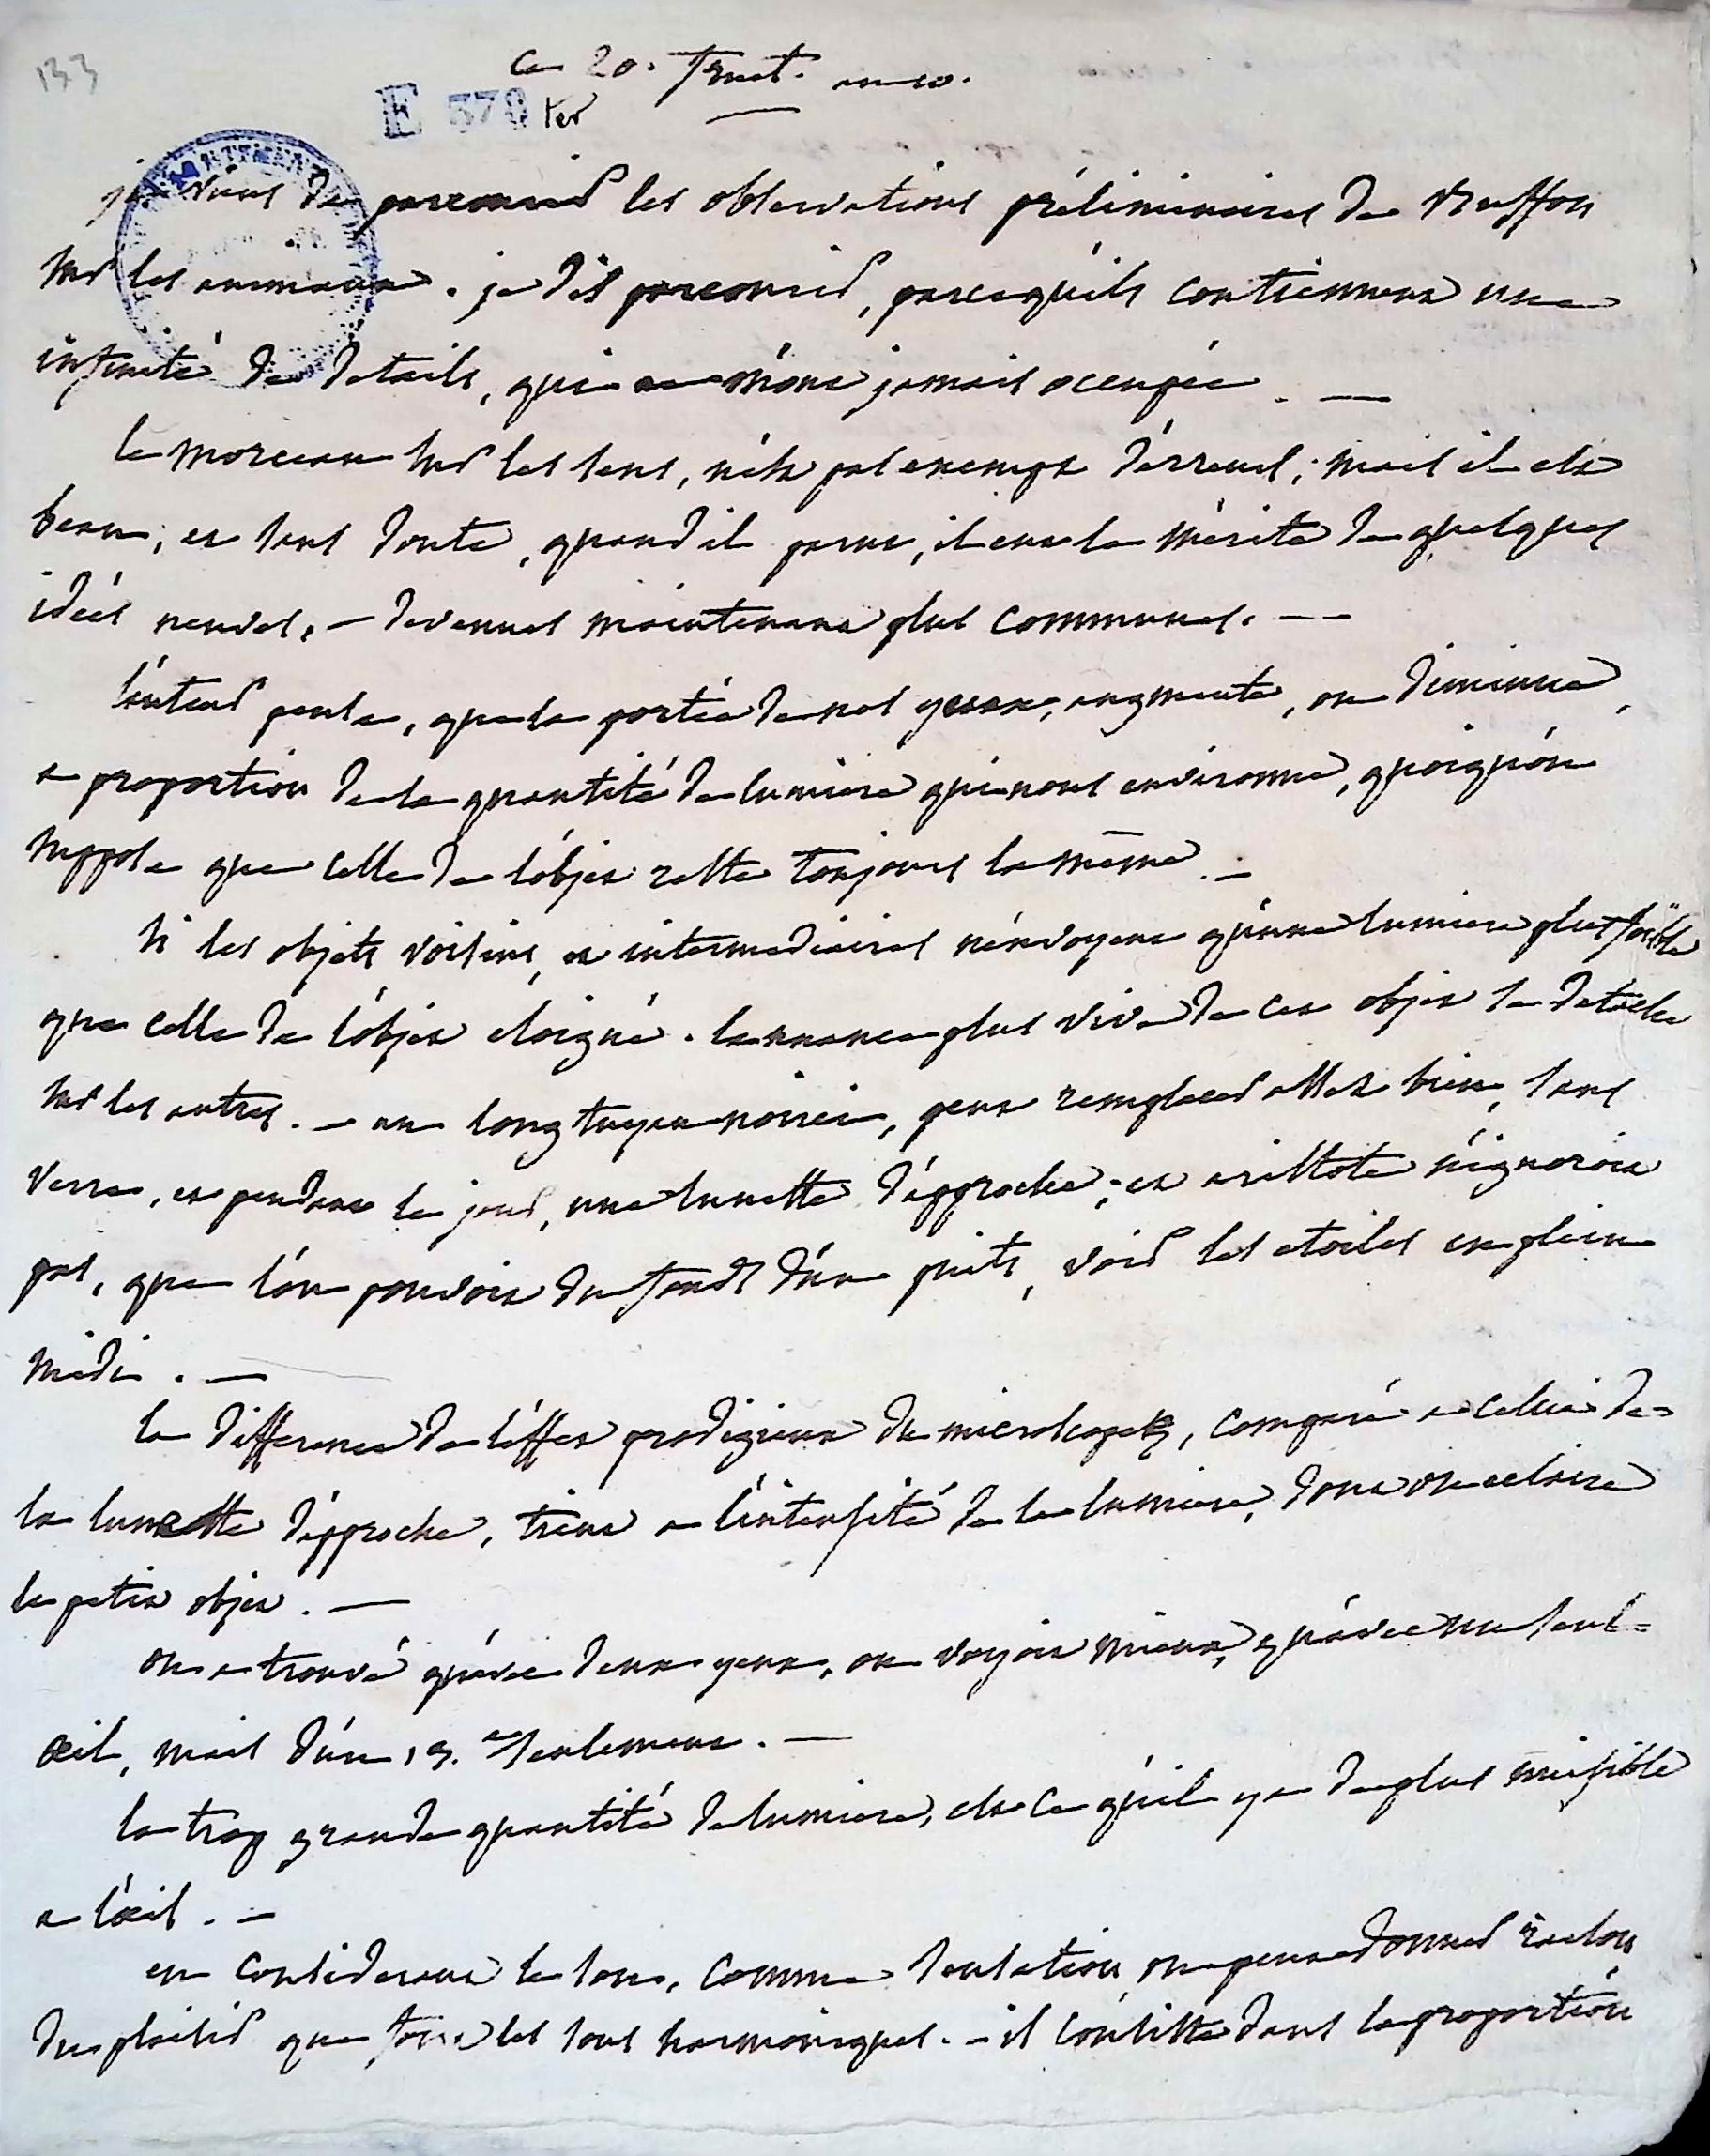 133
ce 20. fruct. an 10.
E 379 ter
je viens de parcourir les observations préliminaires de Buffon
sur les animaux. je dis parcourir, parcequ'ils contiennent une
infinité de details, qui ne m'ont jamais occupée. —
le morceau sur les sens, n'est pas exempt d'erreurs; mais il est
beau; et sans doute, quand il parut, il eut le mérite de quelques
idées neuves, — devenues maintenant plus communes. — —
l'auteur pense, que la portée de nos yeux, augmente, ou diminue,
a proportion de la quantité de lumiere qui nous environne, quoiqu'on
suppose que celle de l'objet reste toujours la même. —
si les objets voisins, et intermediaires n'envoyent qu'une lumiere plus foible
que celle de l'objet eloigné. la nuance plus vive de cet objet se detache
sur les autres. — un long tuyau noirci, peut remplacer assez bien, sans
verre, et pendant le jour, une lunette d'approche; et aristote n'ignoroit
pas, que l'on pouvoit du fonds d'un puits, voir les etoiles en plein
midi. —
la difference de l'effet prodigieux du microscope, comparé a celui de
la lunette d'approche, tient a l'intensité de la lumiere, dont on eclaire
le petit objet. —
on a trouvé qu'avec deux yeux, on voyoit mieux, qu'avec un seul =
œil, mais d'un 13.e seulement. —
la trop grande quantité de lumiere, est ce qu'il y a de plus nuisible
a l'œil. —
en considerant le son, comme sensation, on peut donner raison
du plaisir que font les sons harmoniques. — il consiste dans la proportion